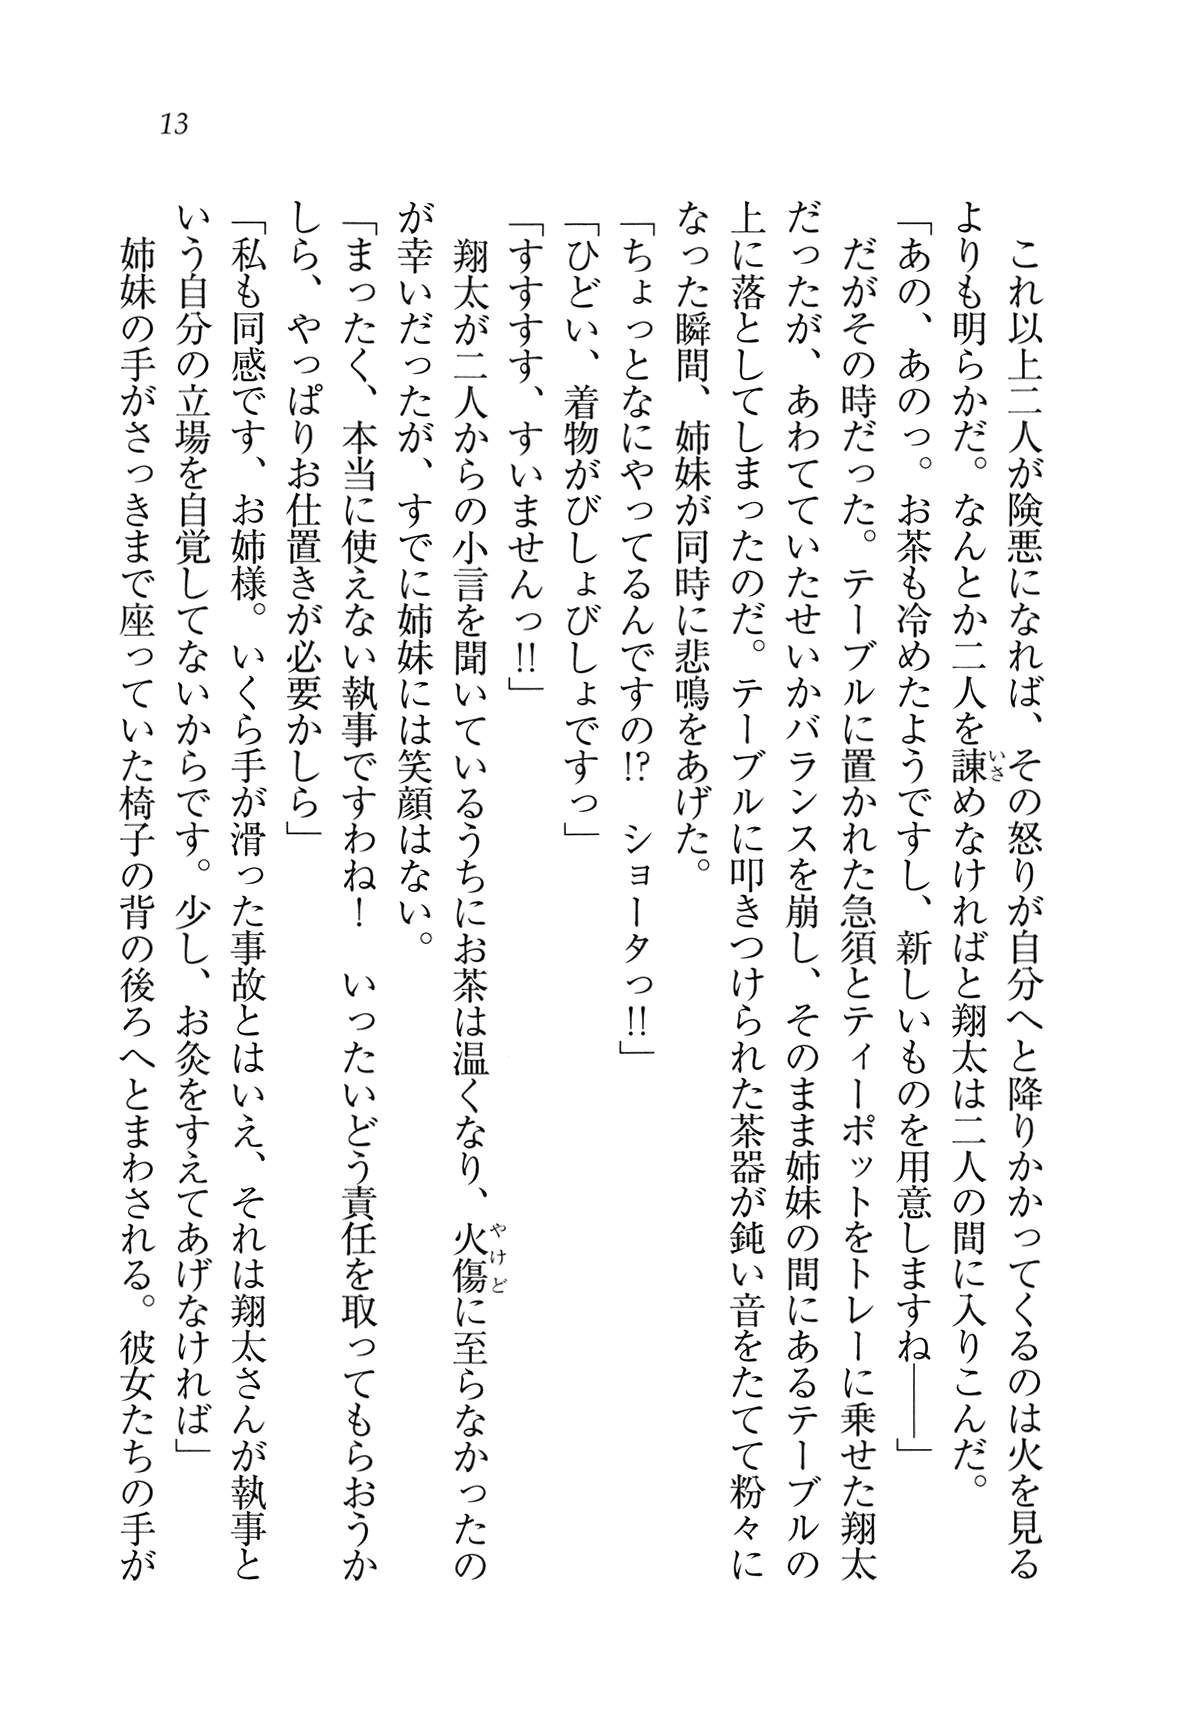 13
これ以上二人が険悪になれば、その怒りが自分へと降りかかってくるのは火を見る
よりも明らかだ。なんとか二人を諌めなければと翔太は二人の間に入りこんだ。
いさ
「あの、あのっ。お茶も冷めたようですし、新しいものを用意しますね――」
だがその時だった。テーブルに置かれた急須とティーポットをトレーに乗せた翔太
だったが、あわてていたせいかバランスを崩し、そのまま姉妹の間にあるテーブルの
上に落としてしまったのだ。テーブルに叩きつけられた茶器が鈍い音をたてて粉々に
なった瞬間、姉妹が同時に悲鳴をあげた。
「ちょっとなにやってるんですの!?　ショータっ!!」
「ひどい、着物がびしょびしょですっ」
「すすすす、すいませんっ!!」
翔太が二人からの小言を聞いているうちにお茶は温くなり、火傷に至らなかったの
やけど
が幸いだったが、すでに姉妹には笑顔はない。
「まったく、本当に使えない執事ですわね！　いったいどう責任を取ってもらおうか
しら、やっぱりお仕置きが必要かしら」
「私も同感です、お姉様。いくら手が滑った事故とはいえ、それは翔太さんが執事と
いう自分の立場を自覚してないからです。少し、お灸をすえてあげなければ」
姉妹の手がさっきまで座っていた椅子の背の後ろへとまわされる。彼女たちの手が